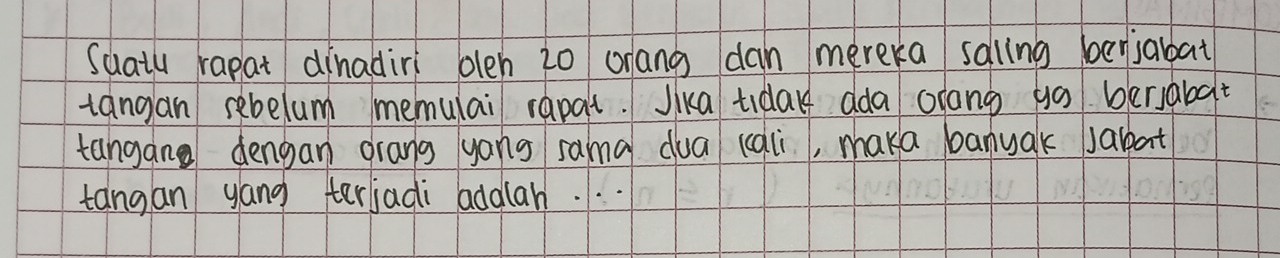 Suatu rapat dihadiri oleh 20 orang dan mereka saling berjabat
tangan sebelum memulai rapat. Jika tidak ada orang yg berjabat
tangan dengan orang yang sama dua kali, maka banyak jabat
tangan yang terjadi adalah ...